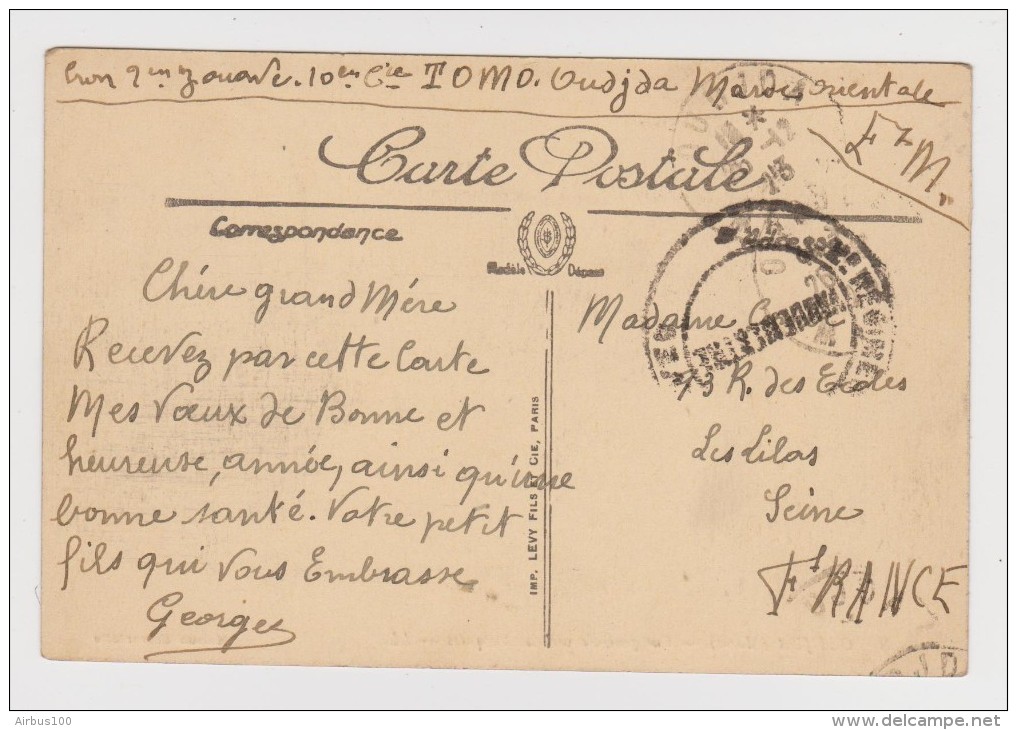 10em Cie TOMO. Oudjda Maroc Orientale
F M.
Carte Postale
Correspondance
Modèle Déposé
Adresse
Chère grand Mère
Recevez par cette Carte
Mes Vœux de Bonne et
heureuse, année, ainsi qu'une
bonne santé. Votre petit
fils qui Vous Embrasse
Georges
Madame
R. des Ecoles
Les Lilas
Seine
FRANCE
IMP. LEVY FILS ET CIE, PARIS
Airbus100
www.delcampe.net